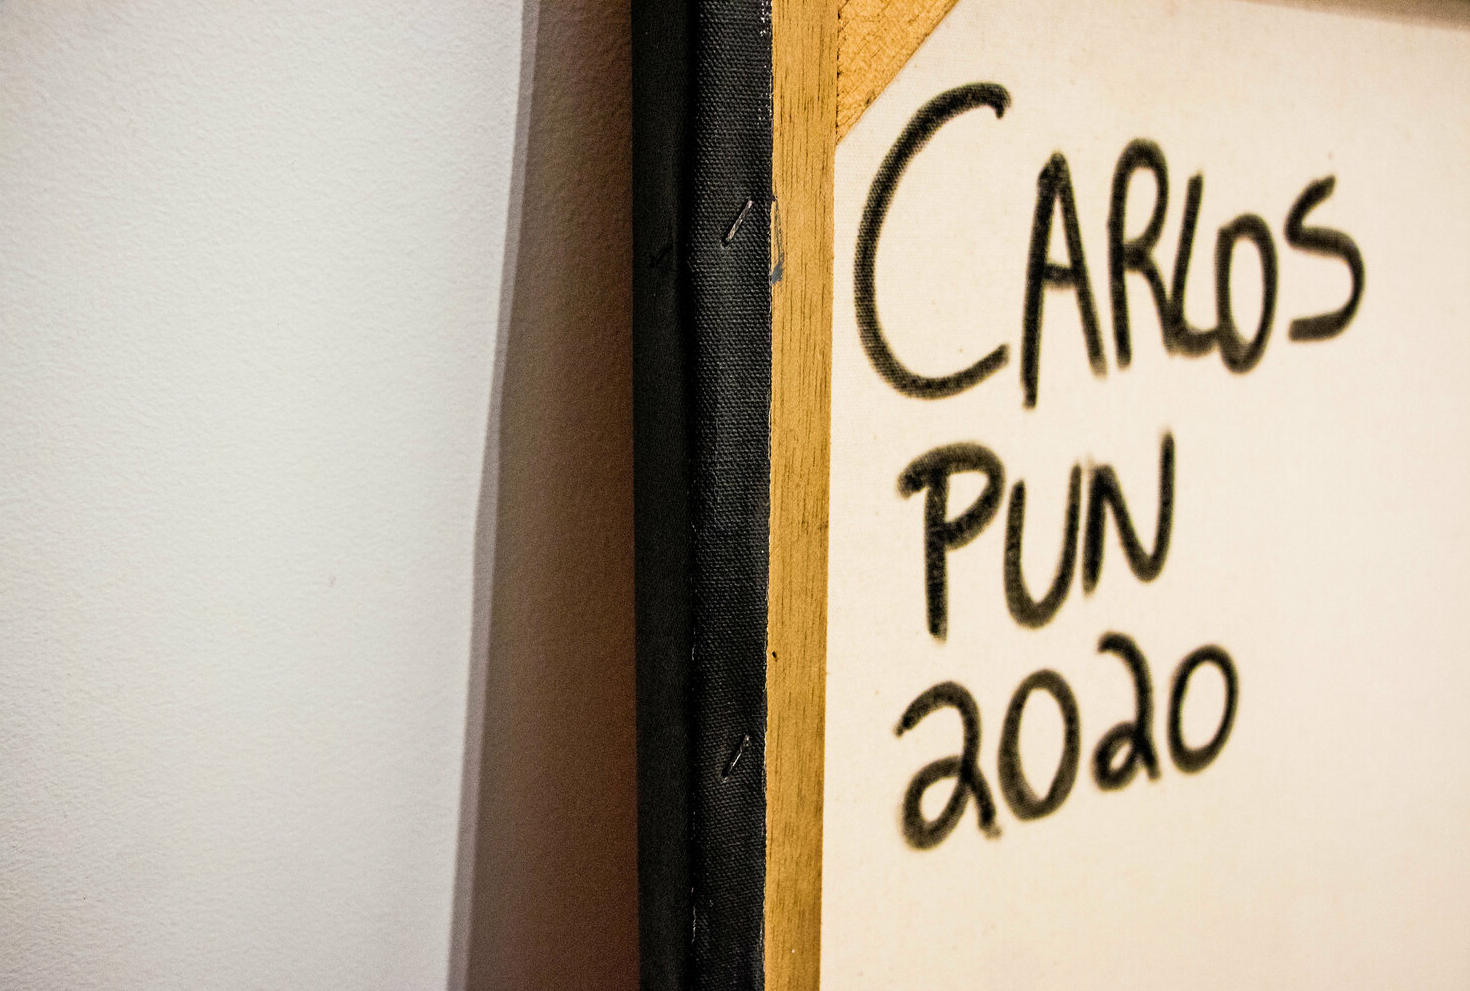 CARLOS
PUN
2020